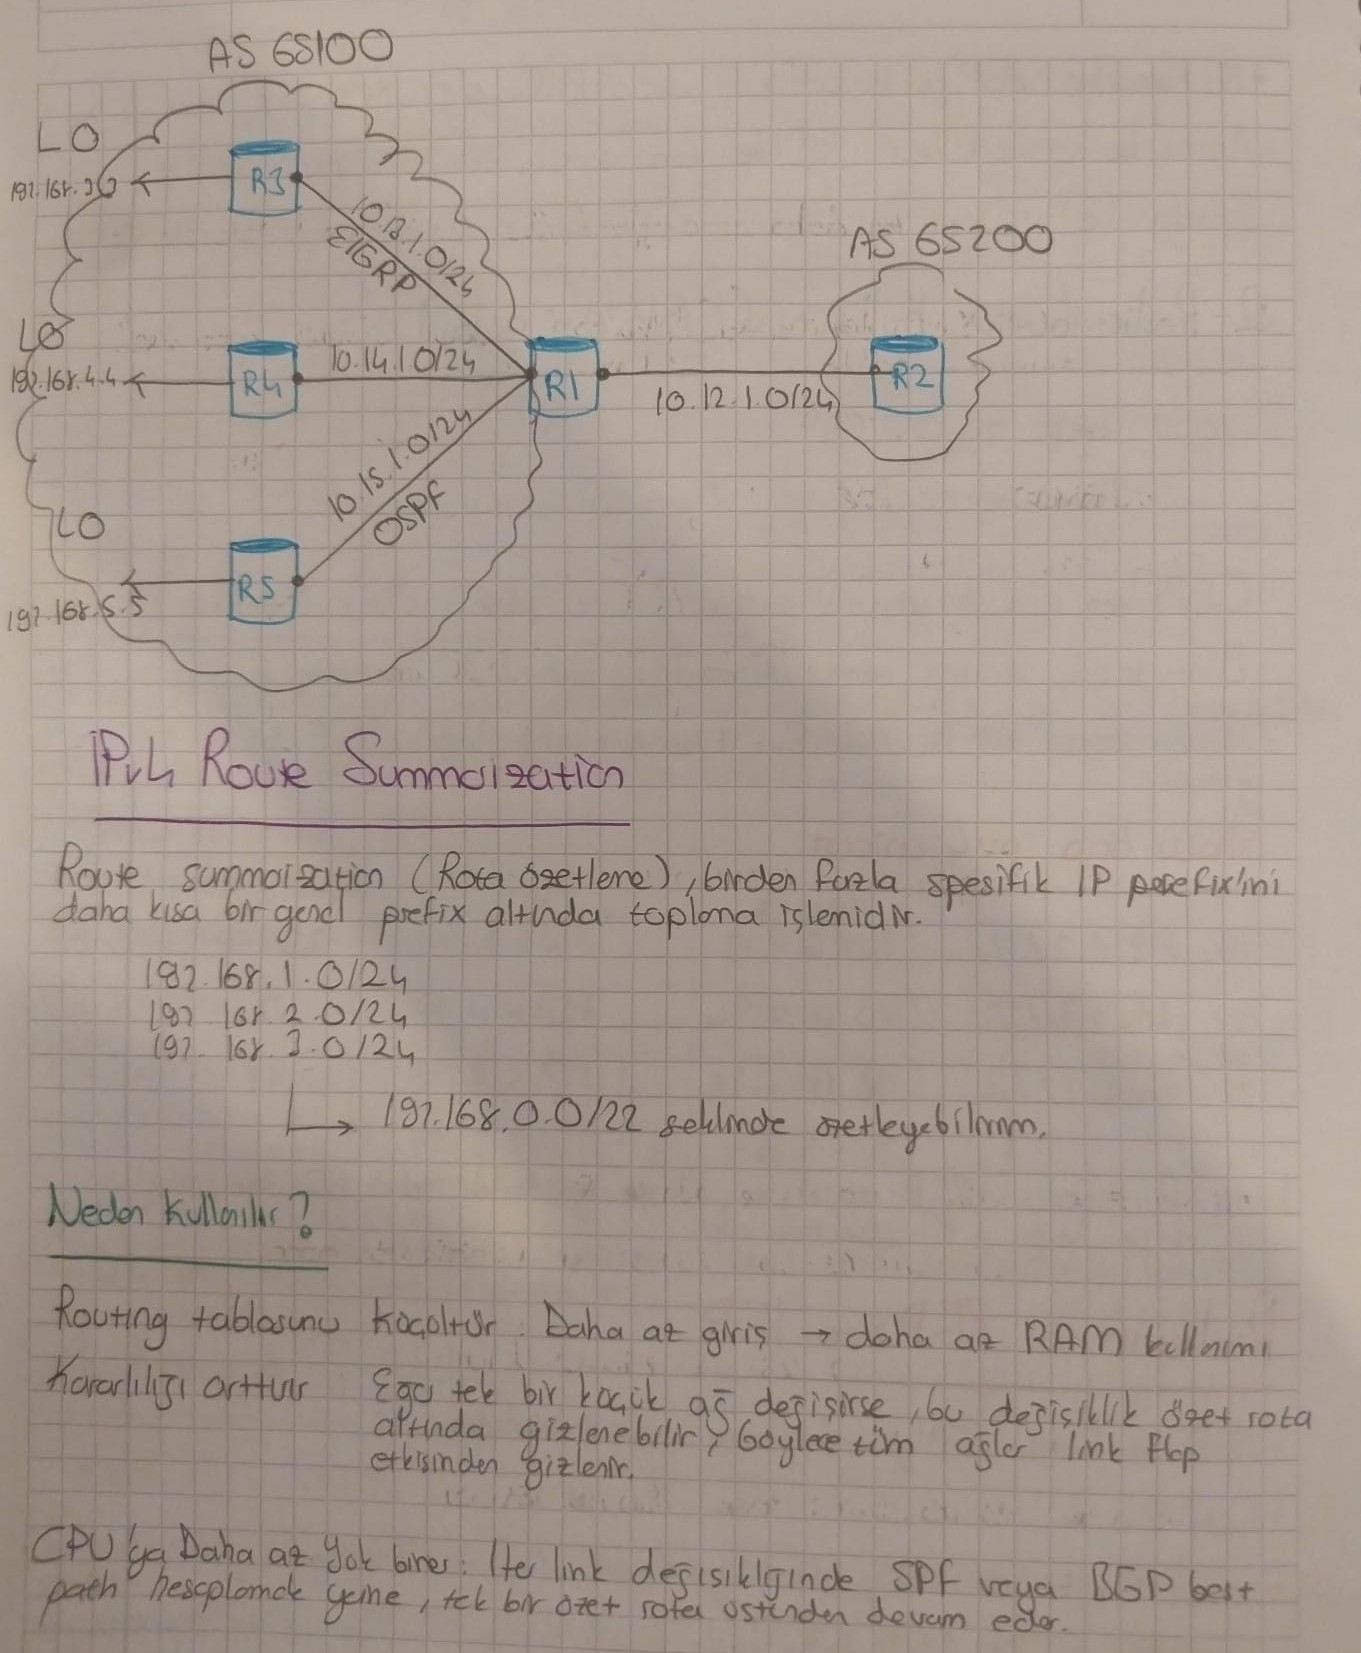 AS 65100
LO
192.168.3.3
R3
10.13.1.0/24
EIGRP
AS 65200
LO
192.168.4.4
R4
10.14.1.0/24
R1
10.12.1.0/24
R2
10.15.1.0/24
OSPF
LO
R5
192.168.5.5
IPv4 Route Summaization
Route summaization (Rota özetleme), birden fazla spesifik IP prefix'ini
daha kısa bir genel prefix altında toplama işlemidir.
192.168.1.0/24
192.168.2.0/24
192.168.3.0/24
192.168.0.0/22 şeklinde özetleyebilirim.
Neden Kullanılır?
Routing tablosunu Küçültür. Daha az giriş → daha az RAM kullanımı
Kararlılığı arttırır Eğer tek bir küçük ağ değişirse, bu değişiklik özet rota
altında gizlenebilir, böylece tüm ağlar link flap
etkisinden gizlenir.
CPU'ya Daha az Yük biner: Her link değişikliğinde SPF veya BGP best
path hesaplamak yerine, tek bir özet rota üstünden devam eder.